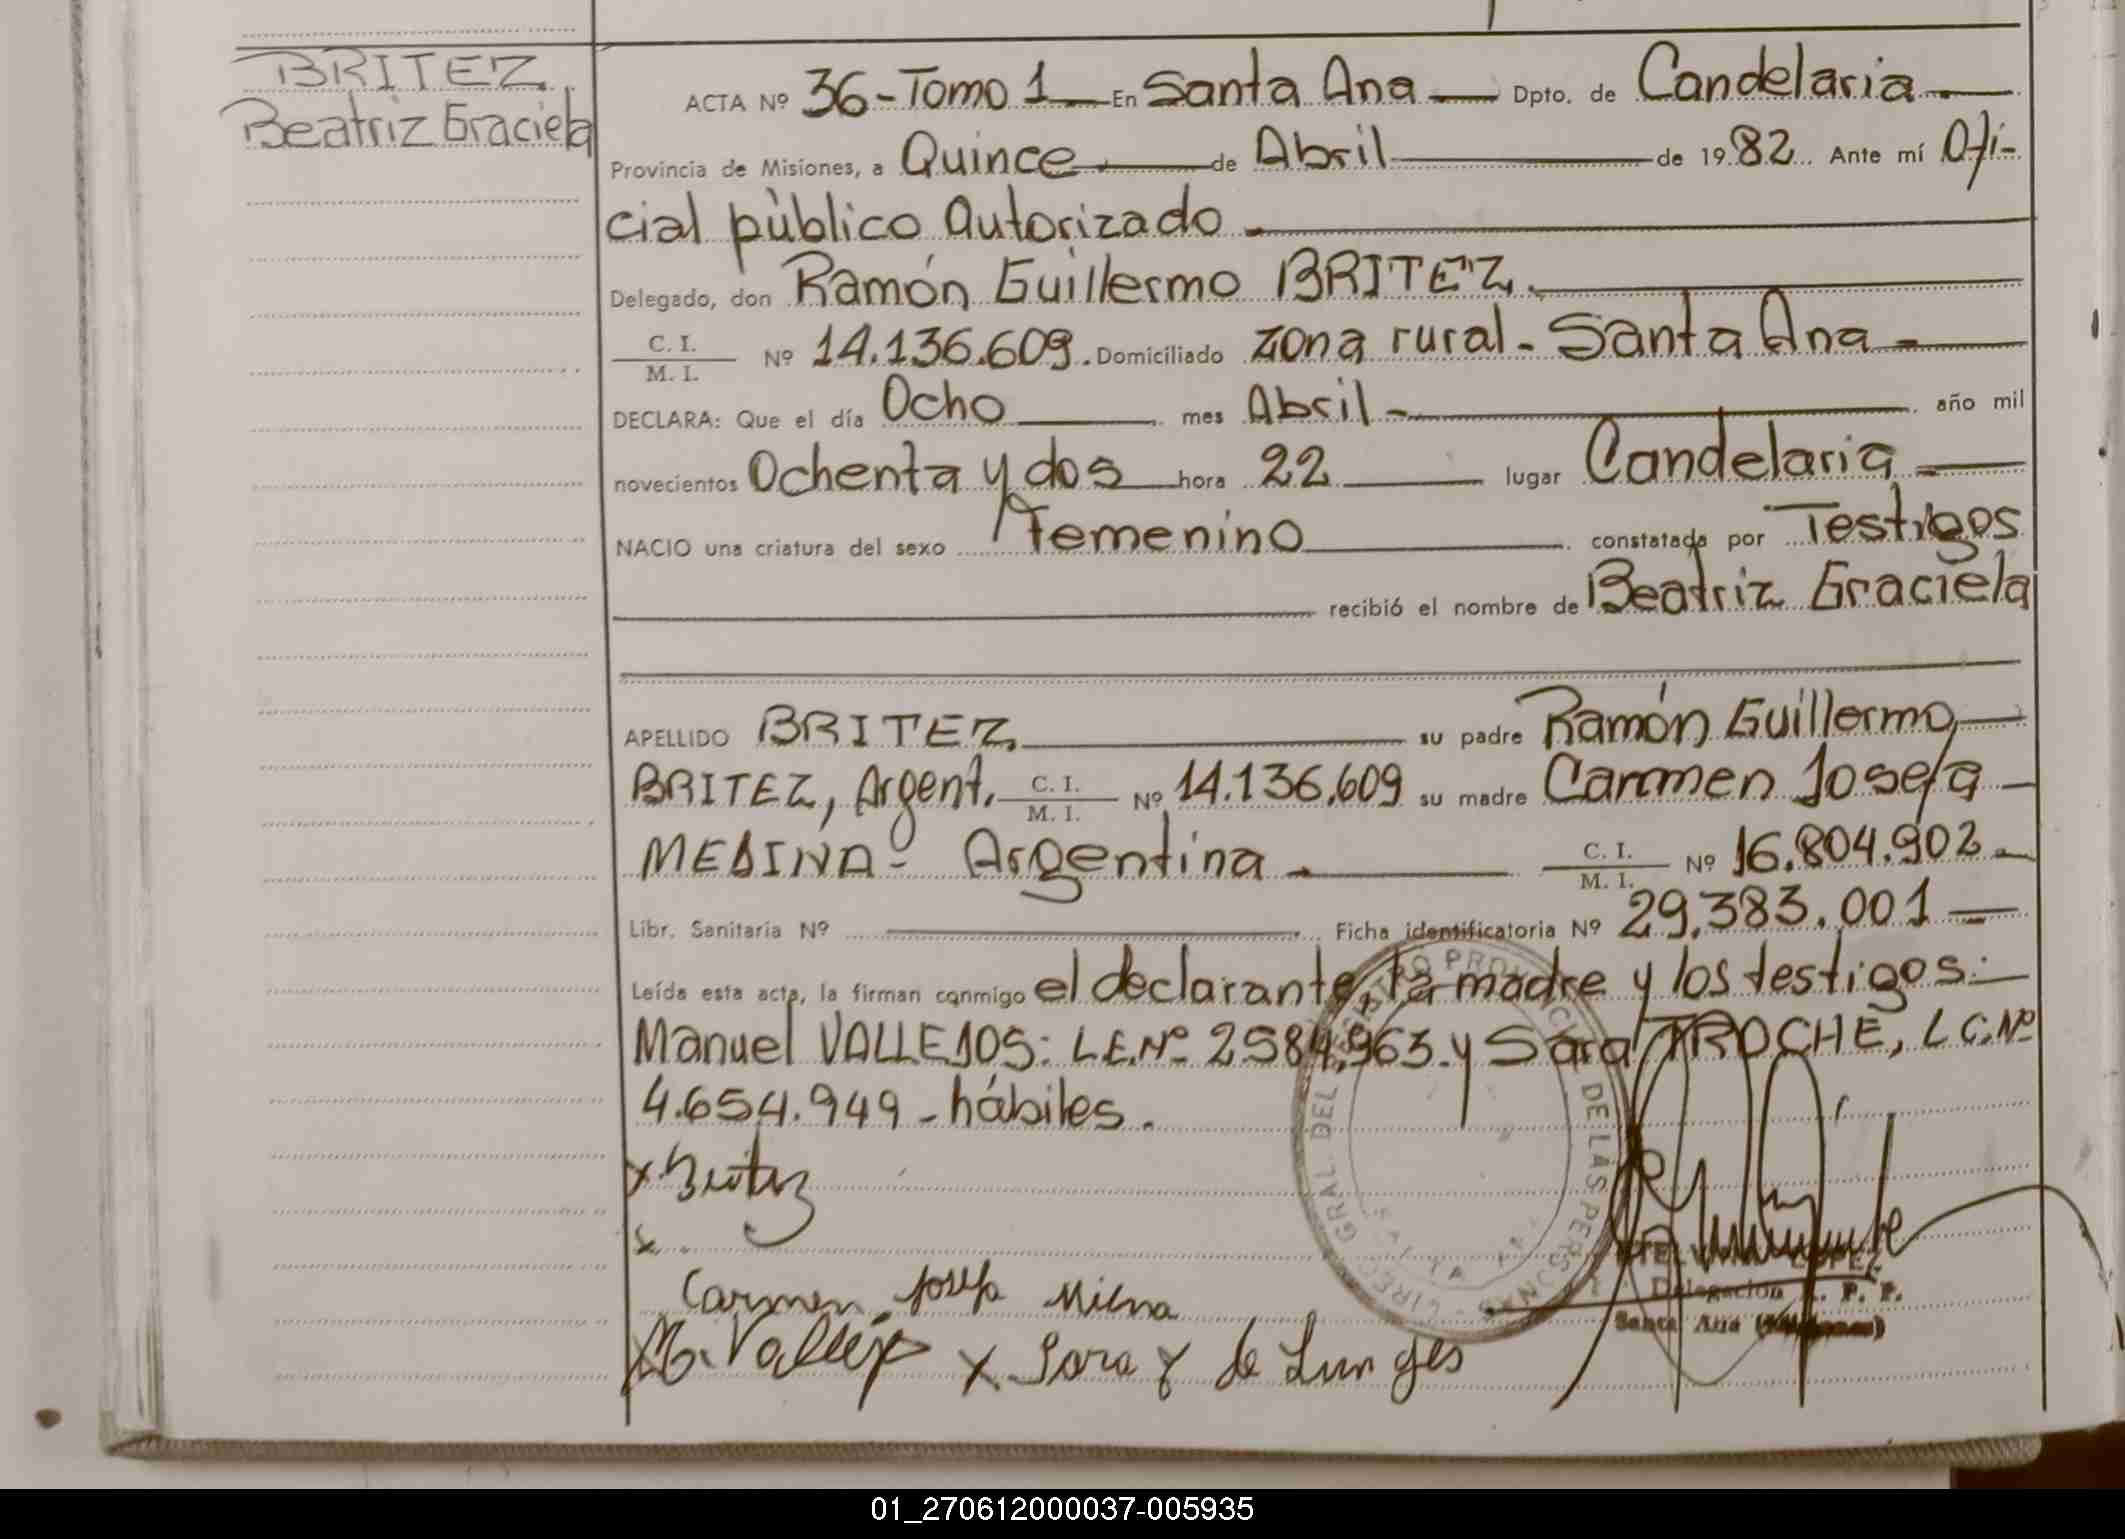 BRITEZ
Beatriz Graciela
ACTA Nº 36-Tomo 1 En Santa Ana Dpto. de Candelaria
Provincia de Misiones, a Quince de Abril de 1982 Ante mí Ofi-
cial pùblico Autorizado
Delegado, don Ramón Guillermo BRITEZ.
C. I.
M. I. Nº 14.136.609. Domiciliado zona rural - Santa Ana
DECLARA: Que el día Ocho mes Abril año mil
novecientos Ochenta y dos hora 22 lugar Candelaria
NACIO una criatura del sexo Femenino constatada por Testigos
recibió el nombre de Beatriz Graciela
APELLIDO BRITEZ su padre Ramón Guillermo
BRITEZ, Argent. C. I.
M. I. Nº 14.136.609 su madre Carmen Josefa
MEDINA - Argentina C. I.
M. I. Nº 16.804.902
Libr. Sanitaria Nº Ficha identificatoria Nº 29.383.001
Leída esta acta, la firman conmigo el declarante, la madre y los testigos:
Manuel VALLEJOS: L.E.Nº 2584.963. y Sara TROCHE, L C.Nº
4.654.949 - hábiles.
x Britez
x
Carmen Josefa
M. Vallejo x Sara Y de
DEL REGISTRO PROVINCIAL DE LAS PERSONAS
LOPEZ
Delegación R. P. P.
Santa Ana (Misiones)
01_270612000037-005935